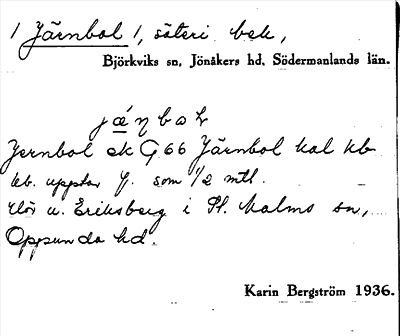 / Järnbol /, säteri bek,
Björkviks sn, Jönåkers hd, Södermanlands län.
Jernbol ek G 66 Järnbol hal kb
kb. upptar J. som 1/2 mtl.
lör u. Eriksberg i St. Malms sn,
Oppunda hd.
Karin Bergström 1936.